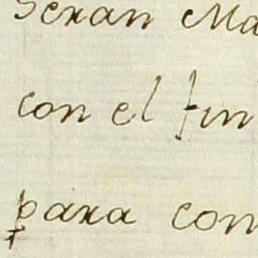 Seran Ma
con el fin
para con